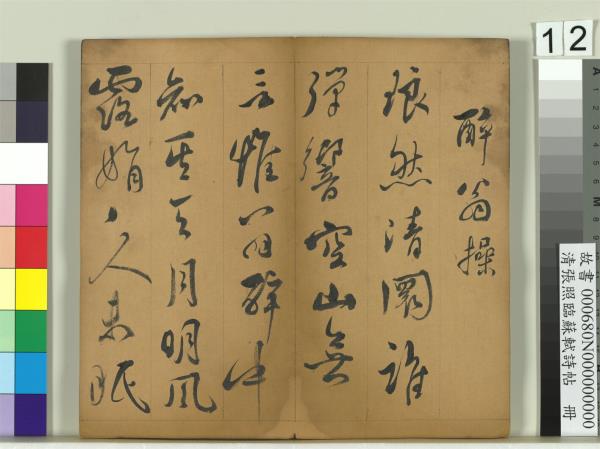 醉翁操
琅然清圜誰
彈響空山無
言惟翁醉中
知其天月明風
露娟〻人未眠
12
故書 000680N000000000
清張照臨蘇軾詩帖 冊